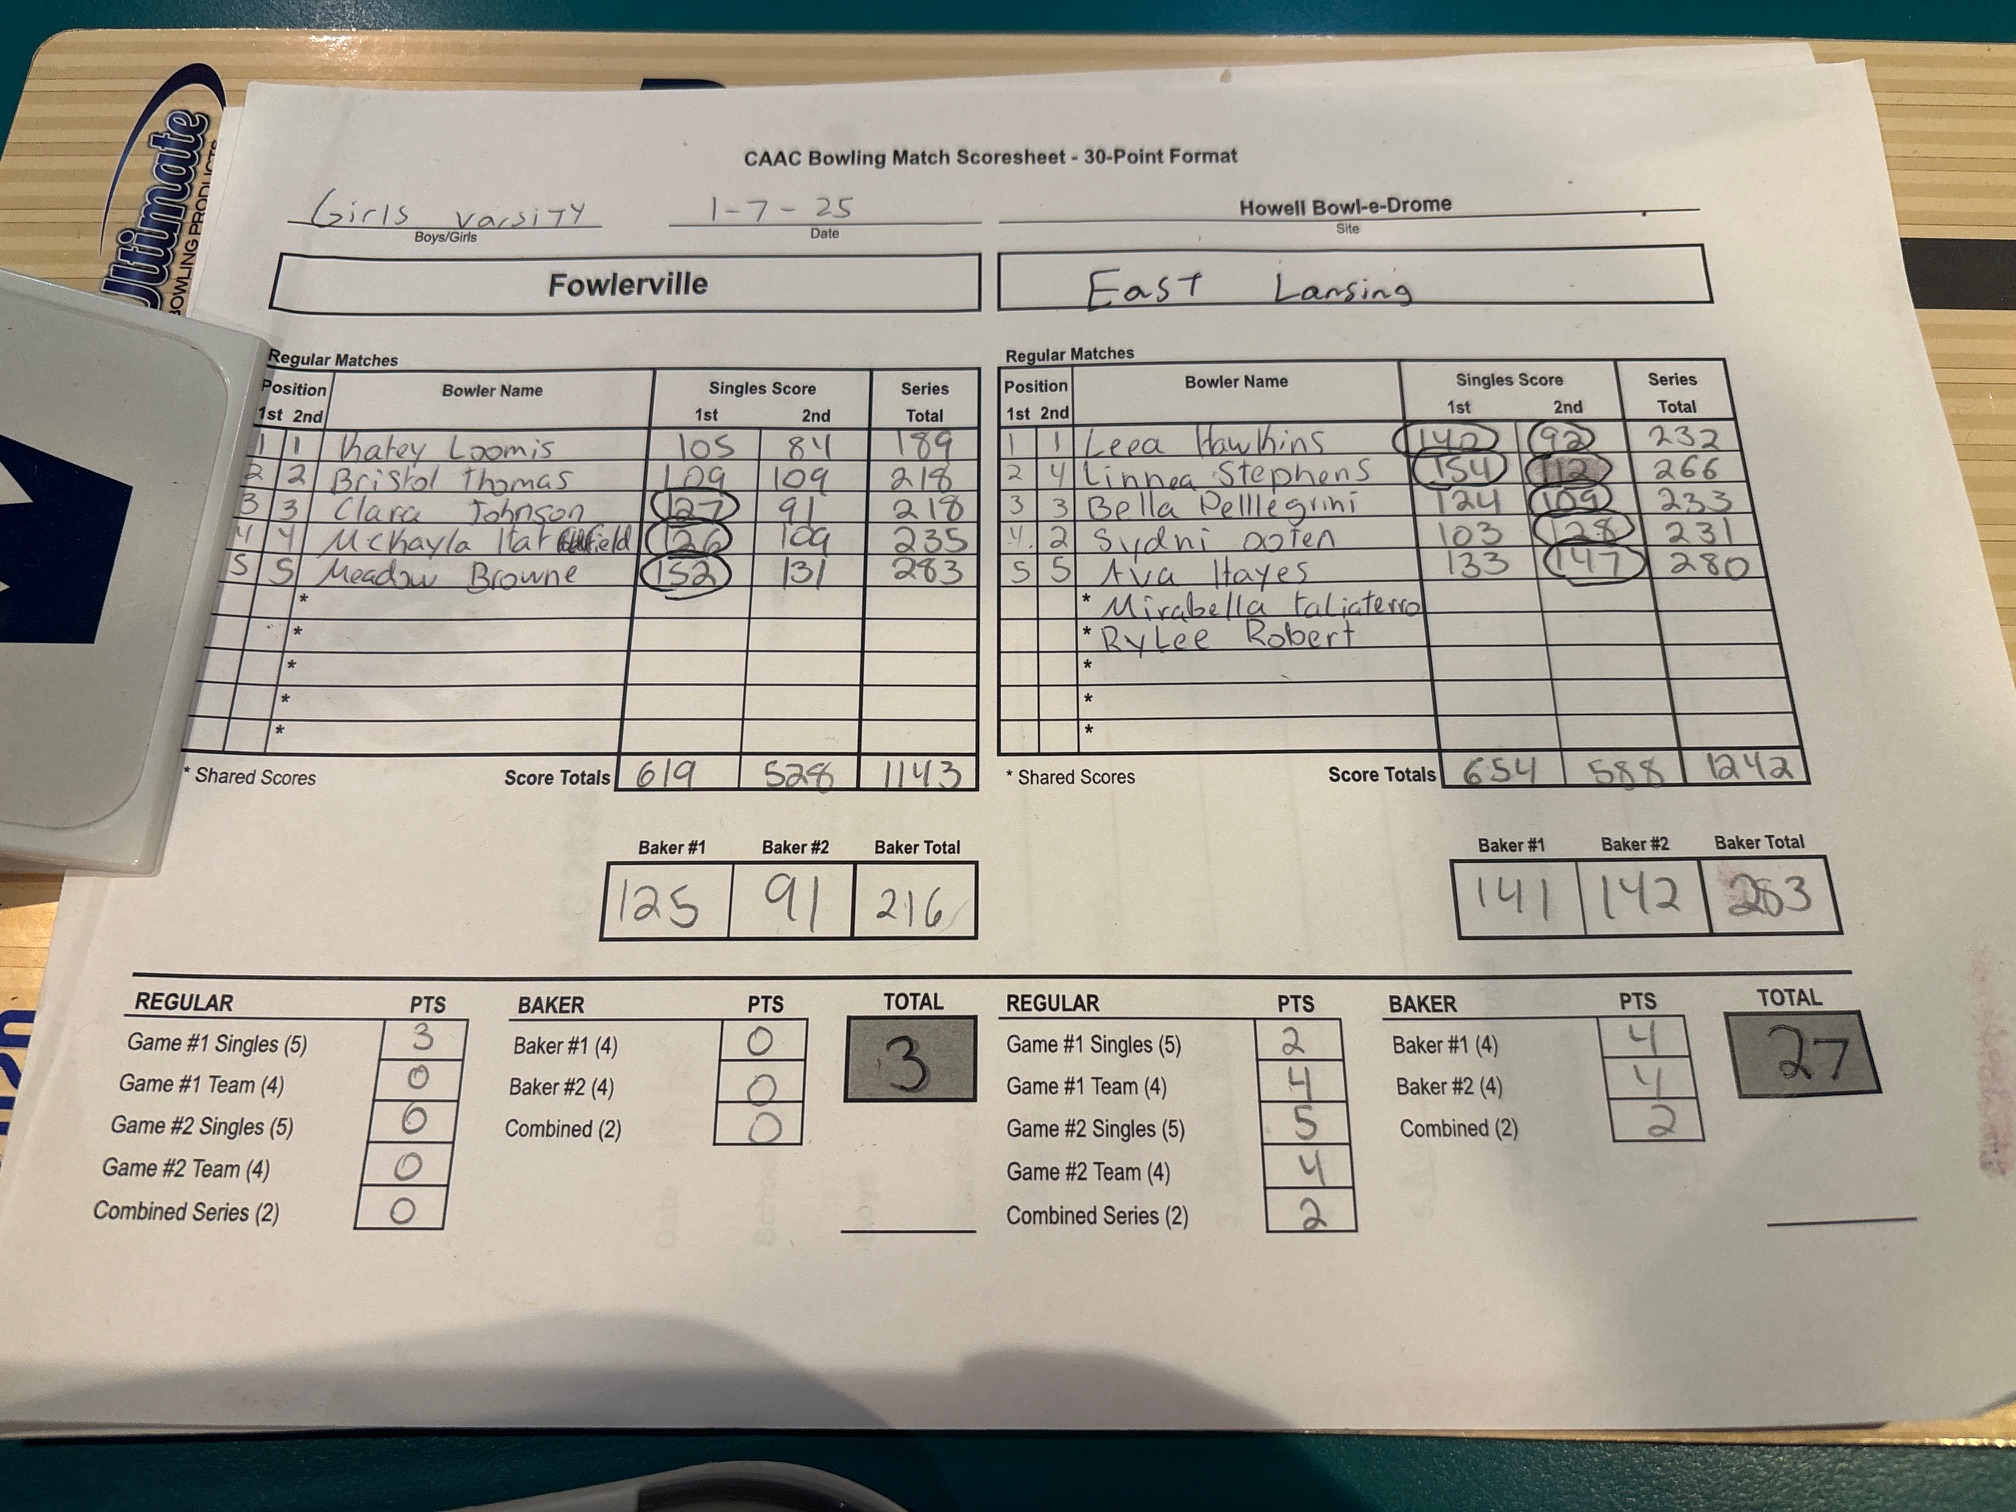 Ultimate
BOWLING PRODUCTS
CAAC Bowling Match Scoresheet - 30-Point Format
Girls varsity 1-7-25 Howell Bowl-e-Drome
Boys/Girls Date Site
Fowlerville East Lansing
Regular Matches Regular Matches
Position Bowler Name Singles Score Series Position Bowler Name Singles Score Series
1st 2nd 1st 2nd Total 1st 2nd 1st 2nd Total
1 1 Khatey Loomis 105 84 189 1 1 Leea Hawkins 142 92 232
2 2 Bristol Thomas 109 109 218 2 4 Linnea Stephens 154 112 266
3 3 Clara Johnson 127 91 218 3 3 Bella Pelllegrini 124 109 233
4 4 Mckayla Hatfield 126 109 235 4 2 Sydni ooten 103 128 231
5 5 Meadow Browne 152 131 283 5 5 Ava Hayes 133 147 280
* * Mirabella taliaterro
* * RyLee Robert
* *
* *
* *
* Shared Scores Score Totals 619 528 1143 * Shared Scores Score Totals 654 588 1242
Baker #1 Baker #2 Baker Total Baker #1 Baker #2 Baker Total
125 91 216 141 142 283
REGULAR PTS BAKER PTS TOTAL REGULAR PTS BAKER PTS TOTAL
Game #1 Singles (5) 3 Baker #1 (4) 0 3 Game #1 Singles (5) 2 Baker #1 (4) 4 27
Game #1 Team (4) 0 Baker #2 (4) 0 Game #1 Team (4) 4 Baker #2 (4) 4
Game #2 Singles (5) 0 Combined (2) 0 Game #2 Singles (5) 5 Combined (2) 2
Game #2 Team (4) 0 Game #2 Team (4) 4
Combined Series (2) 0 Combined Series (2) 2